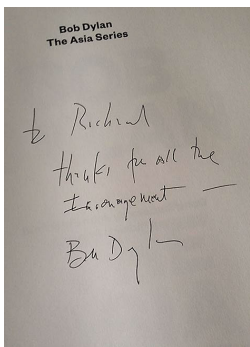 Bob Dylan
The Asia Series
to Richard
thanks for all the
Encouragement —
Bob Dylan